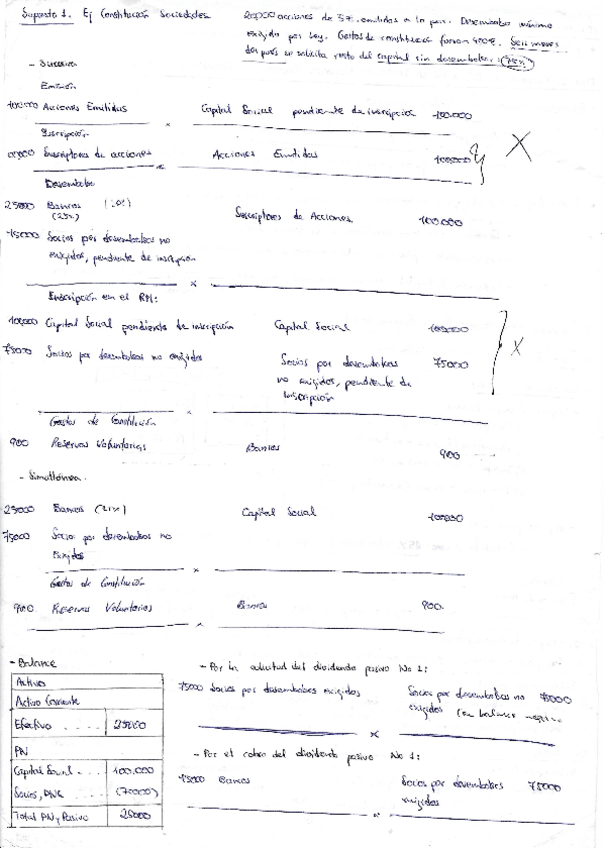 Supuesto 1. Ej Constitución Sociedades
20.000 acciones de 5€. emitidas a la par. Desembolso mínimo
exigido por Ley. Gastos de constitución fueron 900€. Seis meses
después se solicita resto del capital sin desembolsar. (75%)
- Sucesiva
Emisión
100.000 Acciones Emitidas Capital Social pendiente de inscripción 100.000
x
Suscripción
Suscriptores de acciones Acciones Emitidas 100.000 X
x
Desembolso
25000 Bancos Suscriptores de Acciones 100.000
(25%)
75000 Socios por desembolsos no
exigidos, pendiente de inscripción
x
Inscripción en el RM:
100.000 Capital Social pendiente de inscripción Capital Social 100.000
75000 Socios por desembolsos no exigidos Socios por desembolsos 75000 X
no exigidos, pendiente de
inscripción
x
Gastos de Constitución
900 Reservas Voluntarias Bancos 900
- Simultánea.
25000 Bancos (25%) Capital Social 100.000
75000 Socios por desembolsos no
Exigidos
x
Gastos de Constitución
900 Reservas Voluntarias Bancos 900
x
- Balance
Activo
Activo Corriente
Efectivo .... 25000
PN
Capital Social... 100.000
Socios, DNE
Total PN y Pasivo 25000
- Por la solicitud del dividendo pasivo No 1:
75000 Socios por desembolsos exigidos Socios por desembolsos no 75000
exigidos
x
- Por el cobro del dividendo pasivo No 1:
75000 Bancos Socios por desembolsos 75000
exigidos
x